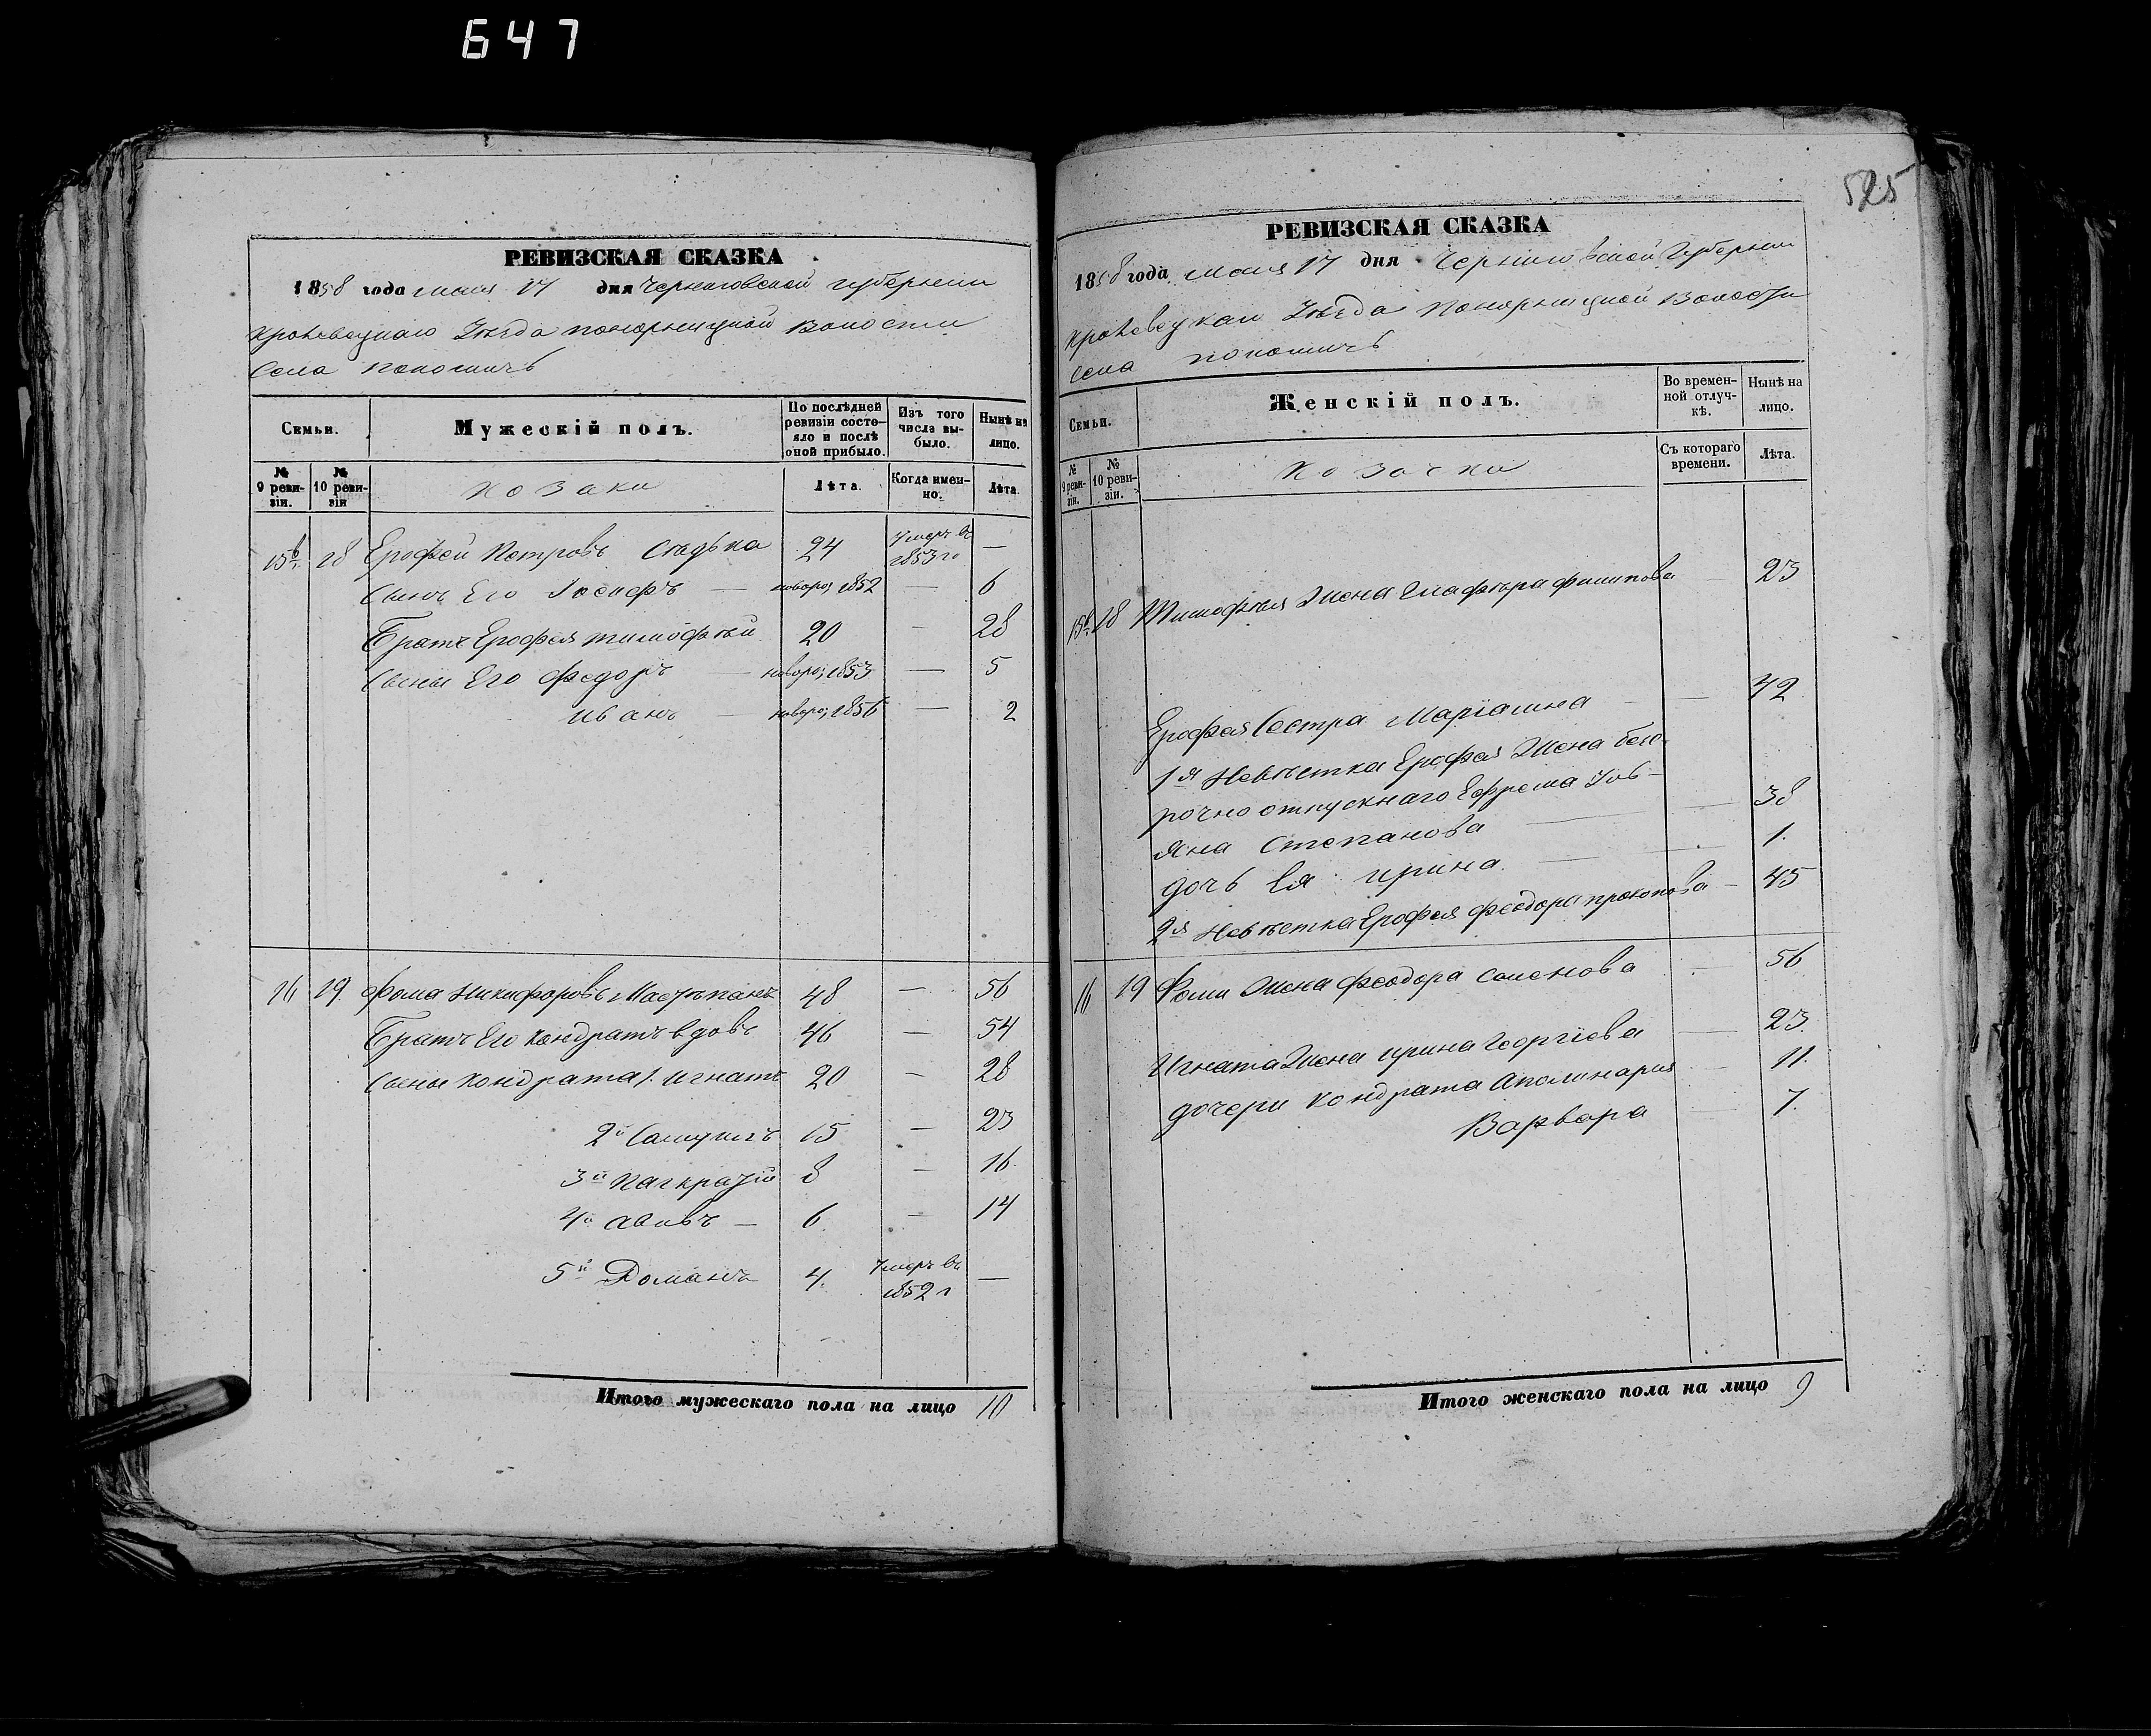 647
РЕВИЗСКАЯ СКАЗКА
1858 года мая 17 дня Черниговской губернии
Кролевецкаго Уѣзда Понорницкой Волости
Села
Семьи.
Мужескій полъ.
По послѣдней ревизіи состояло и послѣ оной прибыло.
Изъ того числа выбыло.
Нынѣ на лицо.
№ 9 ревизіи.
№ 10 ревизіи
Козаки
Лѣта.
Когда именно.
Лѣта.
15 18 Ерофей Петровъ 24 умеръ въ 1853 го —
Сынъ Его Іосифъ — новорож 1852 — 6
Братъ Ерофея Тимофѣй 20 — 28
Сыны Его Федоръ — новорож 1853 — 5
Иванъ — новорож 1856 — 2
16 19 Фома Никифоровъ 48 — 56
Братъ Его Кондратъ вдовъ 46 — 54
Сыны Кондрата 1. Игнатъ 20 — 28
2й Самуилъ 15 — 23
3й Панкратій 8 — 16
4й — 6 — 14
5й Романъ 4 умеръ въ 1852 г —
Итого мужескаго пола на лицо 10
525
РЕВИЗСКАЯ СКАЗКА
1858 года мая 17 дня Черниговской Губернии
Кролевецкаго Уѣзда Понорницкой Волости
Села
Семьи.
Женскій полъ.
Во временной отлучкѣ.
Нынѣ на лицо.
№ 9 ревизіи.
№ 10 ревизіи.
Козачки
Съ котораго времени.
Лѣта.
15 18 Тимофѣя Жена Гликерія Филипова — 23
Ерофея Сестра Маріамна — 42
1я Невѣстка Ерофея Жена безс-
рочно отпускнаго Ефрема Улі-
яна Степанова — 38
дочь Ея Ирина — 1.
2я Невѣстка Ерофея Феодора Прокопова — 45
16 19 Фомы Жена Феодора Семенова — 56
Игната Жена Ирина Георгіева — 23
дочери Кондрата Аполинария — 11.
Варвара — 7.
Итого женскаго пола на лицо 9